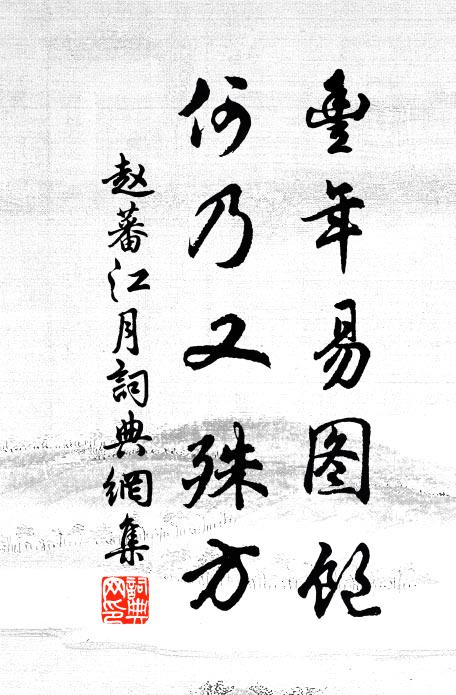 豐年易图飽
何乃又殊方
赵蕃江月詞典網集
詞典網印